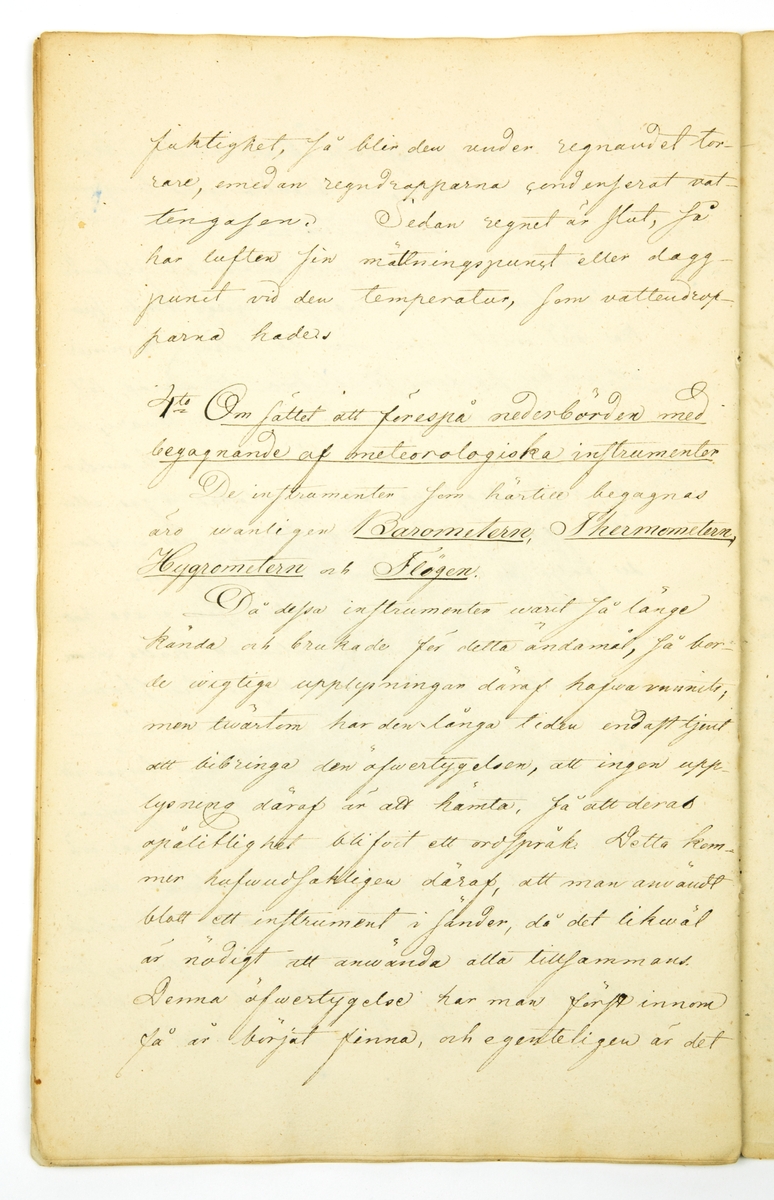 fuktighet, så blir den under regnandet tor-
rare, emedan regndropparna condenserat vat-
tengasen. Sedan regnet är slut, så
har luften sin mättningspunct eller dagg-
punct vid den temperatur, som vattendrop-
parna hade.
4to Om sättet att förespå nederbörden med
begagnande af meteorologiska instrumenter
De instrumenter som härtill begagnas
äro wanligen Barometern, Thermometern,
Hygrometern och Flögen.
Då dessa instrumenter warit så länge
kända och brukade för detta ändamål, så bor-
de wigtiga upplysningar däraf hafwa vunnits;
men twärtom har den långa tiden endast tjent
att bibringa den öfwertygelsen, att ingen upp-
lysning däraf är att hämta, så att deras
opålitlighet blifvit ett ordspråk. Detta kom-
mer hufwudsakligen däraf, att man användt
blott ett instrument i sänder, då det likwäl
är nödigt att anwända alla tillsammans.
Denna öfwertygelse har man först innom
få år börjat finna, och egenteligen är det